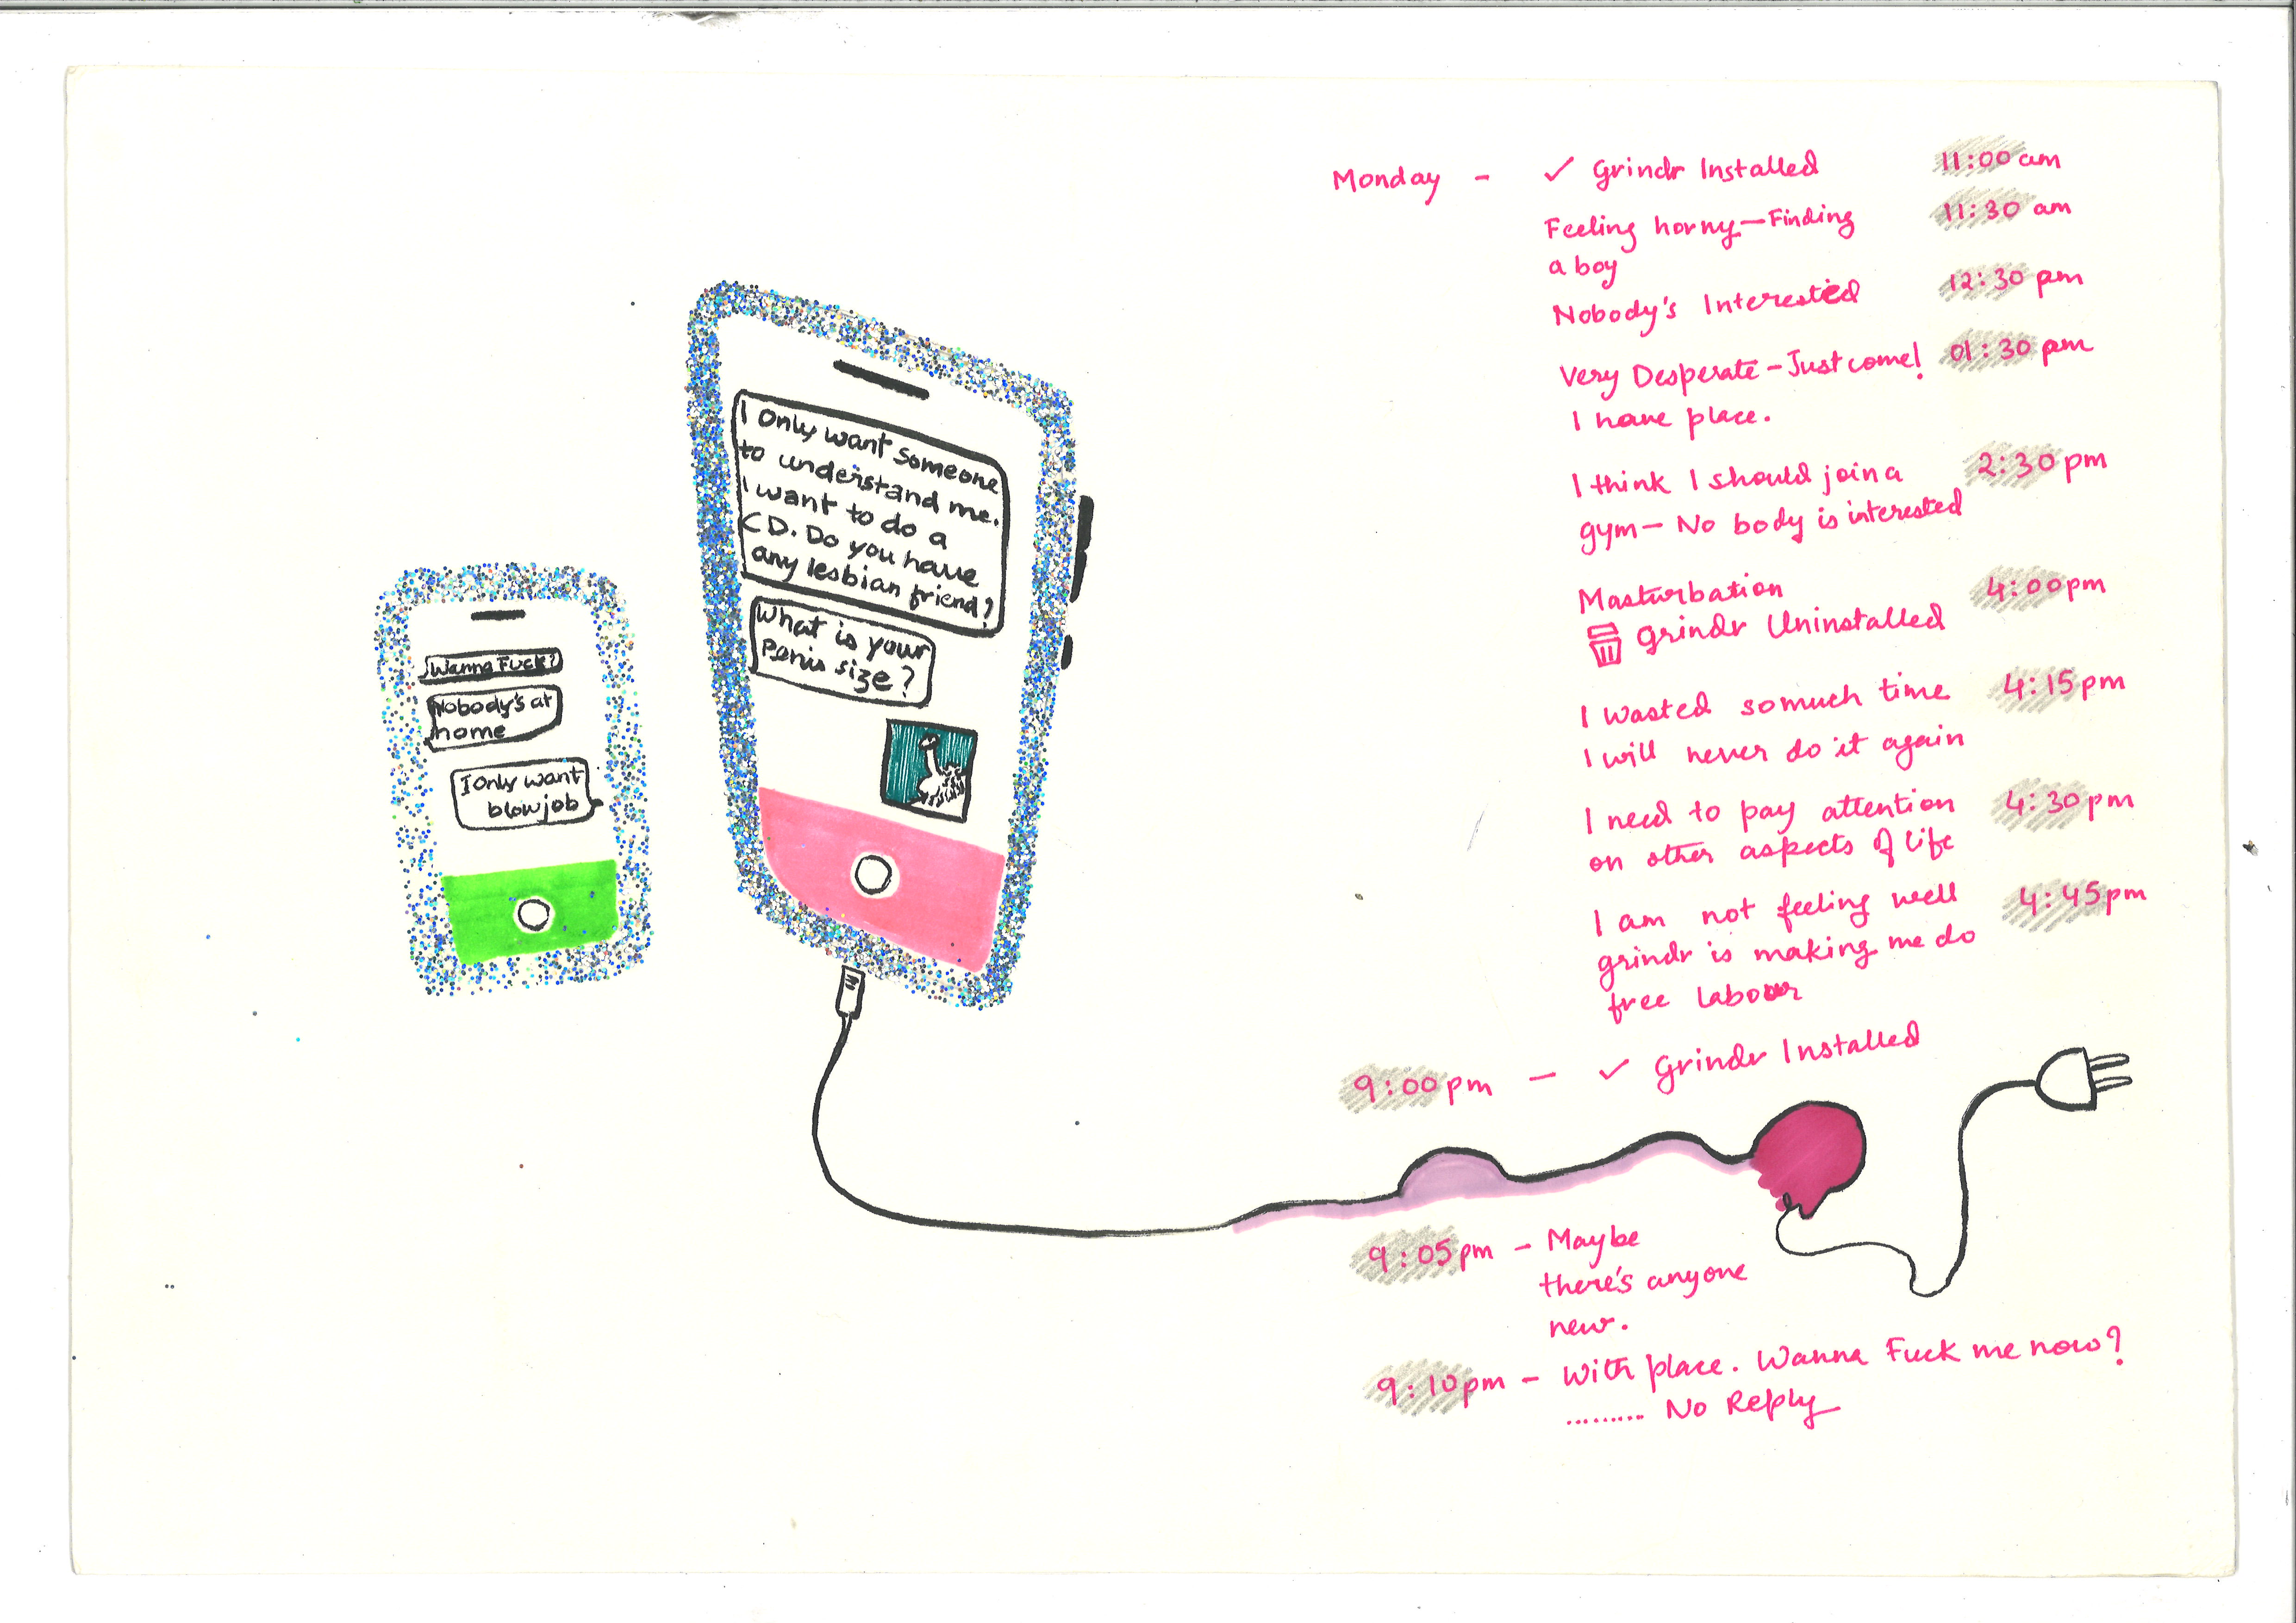 Wanna Fuck?
Nobody's at
home
I only want
blowjob
I Only want someone
to understand me.
I want to do a
CD. Do you have
any lesbian friend?
What is your
Penis size?
Monday - ✓ Grindr Installed 11:00 am
Feeling horny—Finding 11:30 am
a boy
Nobody's Interested 12:30 pm
Very Desperate - Just come! 01:30 pm
I have place.
I think I should join a 2:30 pm
gym— No body is interested
Masturbation 4:00pm
grindr Uninstalled
I wasted somuch time 4:15pm
I will never do it again
I need to pay attention 4:30pm
on other aspects of life
I am not feeling well 4:45pm
grindr is making me do
free labour
9:00pm — ✓ Grindr Installed
9:05pm - Maybe
there's anyone
new.
9:10pm - With place. Wanna Fuck me now?
......... No Reply